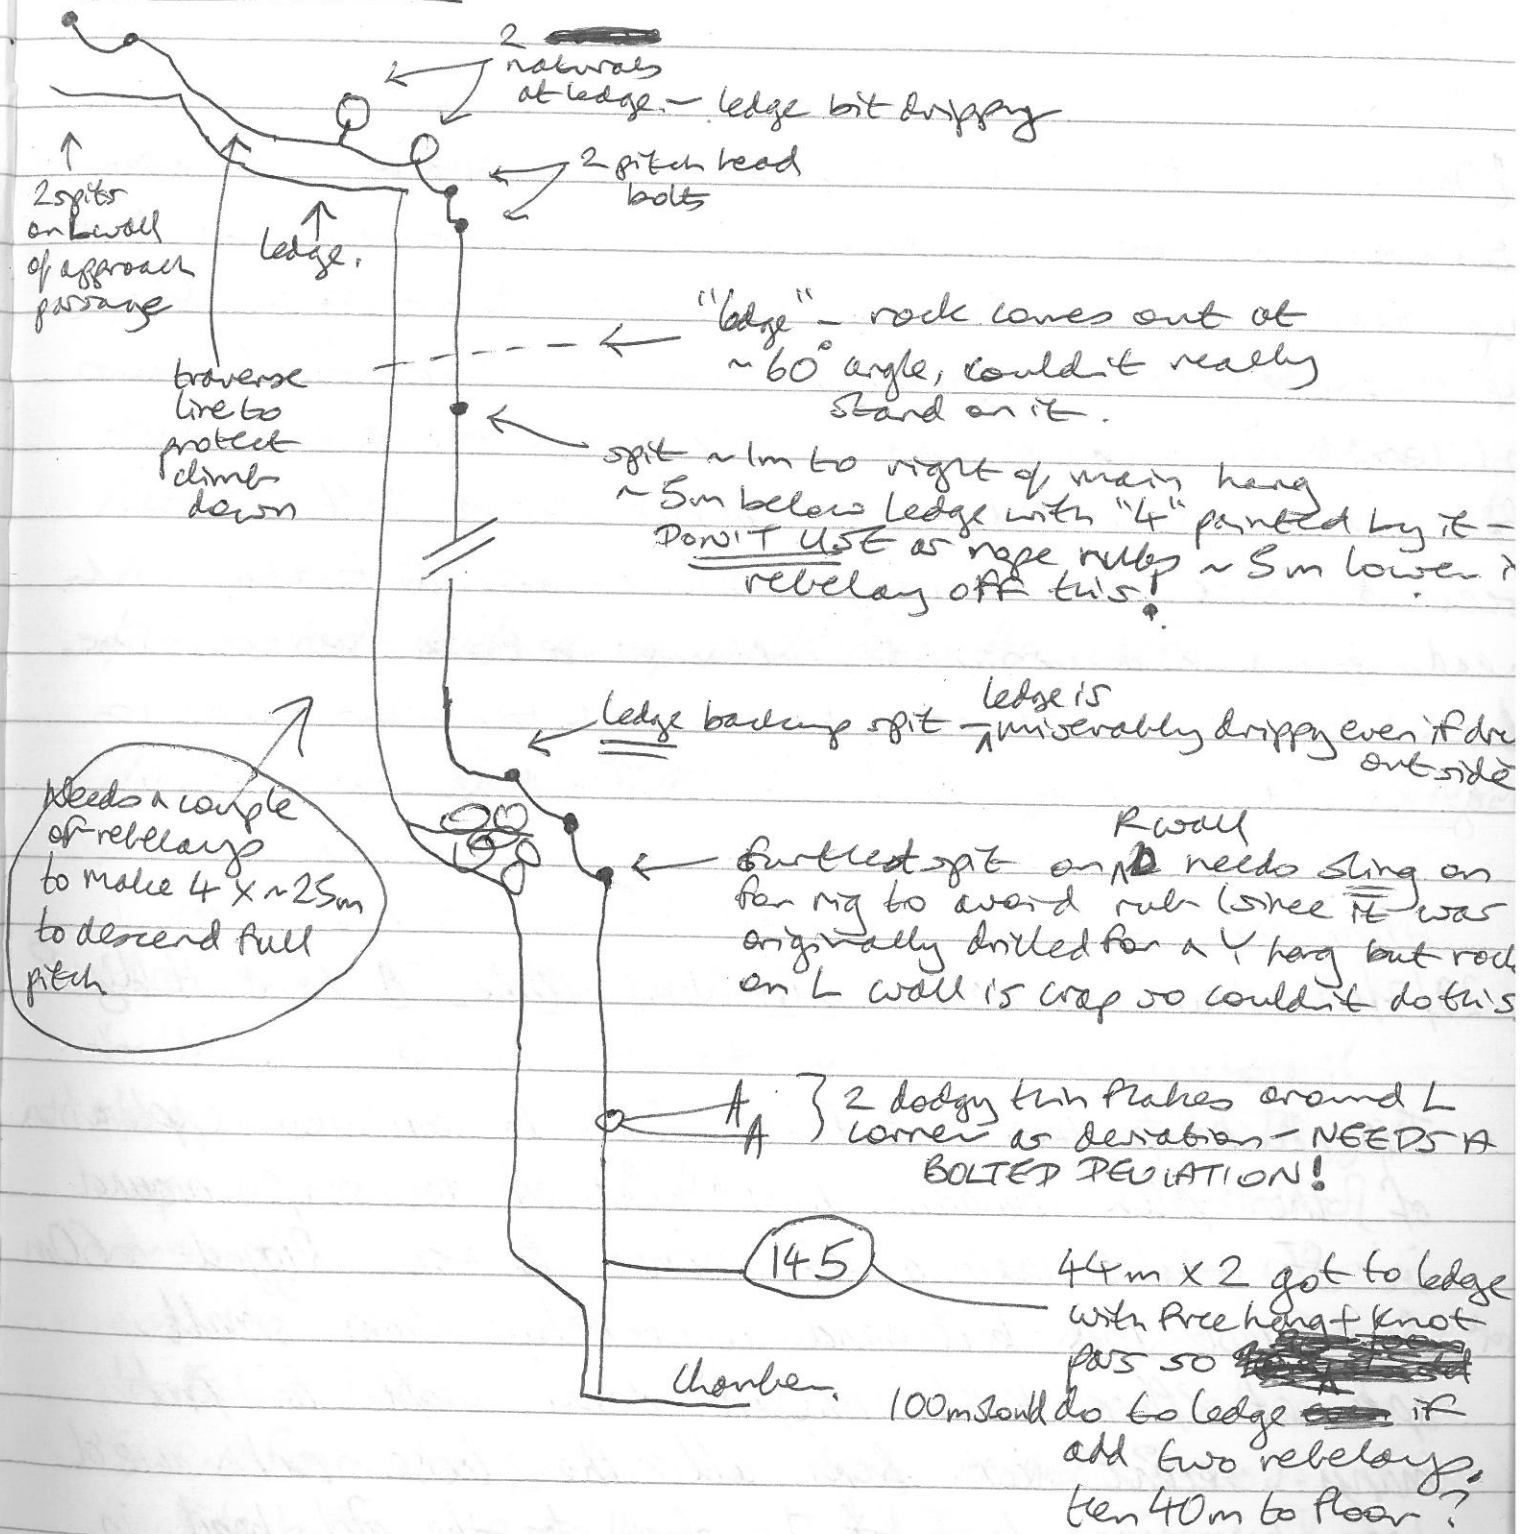 2
naturals
at ledge. - ledge bit drippy
2 pitch head
bolts
2 spits
on L wall
of approach
passage
ledge.
traverse
line to
protect
climb
down
"ledge" - rock comes out at
~60° angle, couldn't really
stand on it.
spit ~1m to right of main hang
~5m below ledge with "4" painted by it -
DON'T USE as rope rubs ~5m lower if
rebelay off this!
ledge is
ledge backup spit - miserably drippy even if dry
outside
Needs a couple
of rebelays
to make 4 x ~25m
to descend full
pitch
R wall
furthest spit on needs sling on
for rig to avoid rub (since it was
originally drilled for a Y hang but rock
on L wall is crap so couldn't do this
2 dodgy thin flakes around L
corner as deviation - NEEDS A
BOLTED DEVIATION!
145
44m x 2 got to ledge
with free hang + knot
pass so
100m should do to ledge if
add two rebelays,
then 40m to floor?
Chamber.